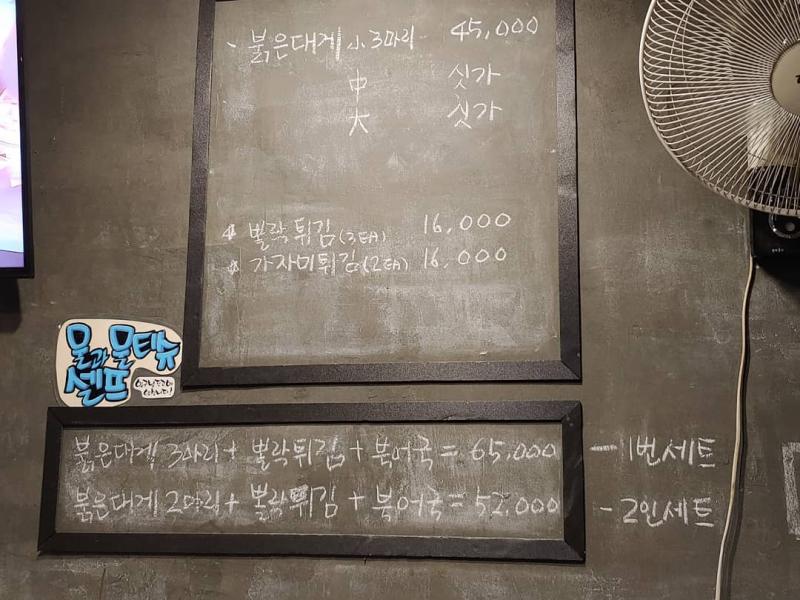 붉은대게 小 3마리 45,000
中 싯가
大 싯가
뽈락 튀김 (3EA) 16,000
가자미튀김 (2EA) 16,000
물과 물티슈
셀프
붉은대게 3마리 + 뽈락튀김 + 북어국 = 65,000 - 1번세트
붉은대게 2마리 + 뽈락튀김 + 북어국 = 52,000 - 2인세트